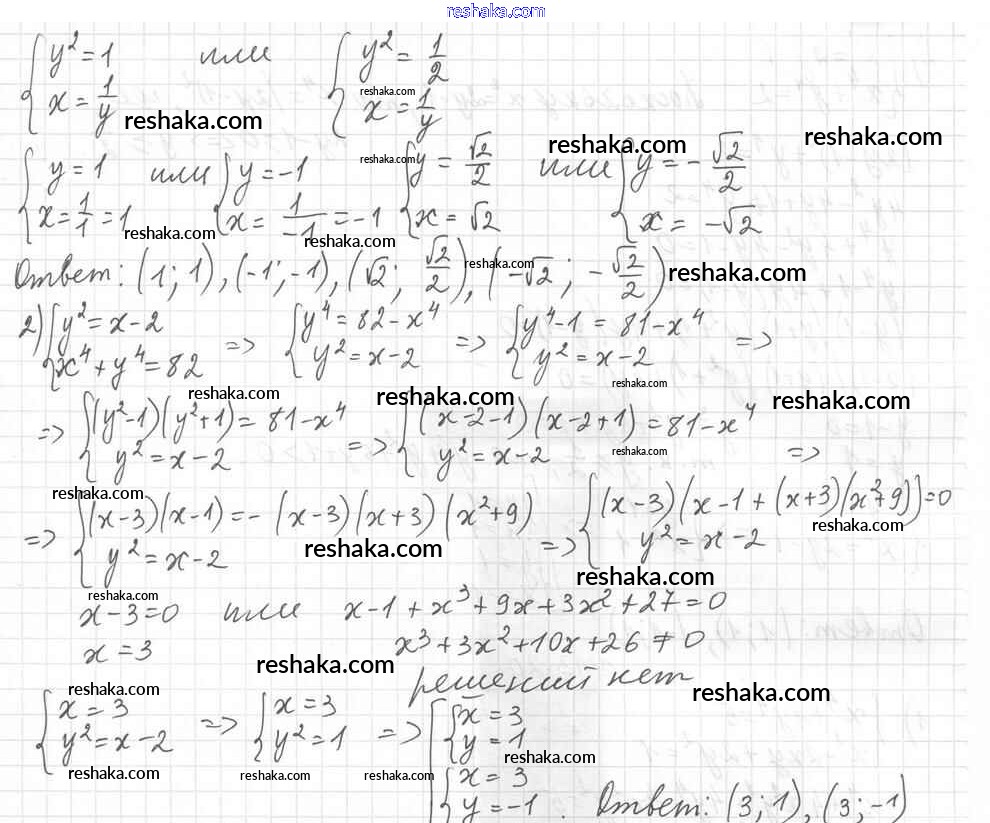 reshaka.com
{ y² = 1 или { y² = 1/2
{ x = 1/y { x = 1/y
reshaka.com reshaka.com
reshaka.com reshaka.com reshaka.com
{ y = 1 или { y = -1 { y = √2/2 или { y = -√2/2
{ x = 1/1 = 1 { x = 1/-1 = -1 { x = √2 { x = -√2
reshaka.com reshaka.com
Ответ: (1; 1), (-1; -1), (√2; √2/2), (-√2; -√2/2)
reshaka.com reshaka.com
2) { y² = x-2 => { y⁴ = 82-x⁴ => { y⁴-1 = 81-x⁴ =>
{ x⁴+y⁴ = 82 { y² = x-2 { y² = x-2
reshaka.com reshaka.com reshaka.com reshaka.com
=> { (y²-1)(y²+1) = 81-x⁴ => { (x-2-1)(x-2+1) = 81-x⁴ =>
{ y² = x-2 { y² = x-2
reshaka.com reshaka.com
=> { (x-3)(x-1) = -(x-3)(x+3)(x²+9) => { (x-3)(x-1+(x+3)(x²+9)) = 0
{ y² = x-2 { y² = x-2
reshaka.com reshaka.com reshaka.com
reshaka.com
x-3=0 или x-1+x³+9x+3x²+27=0
x=3 x³+3x²+10x+26≠0
reshaka.com решений нет
reshaka.com reshaka.com
{ x = 3 => { x = 3 => [ { x = 3
{ y² = x-2 { y² = 1 { y = 1
reshaka.com reshaka.com reshaka.com reshaka.com
{ x = 3
{ y = -1. Ответ: (3; 1), (3; -1)